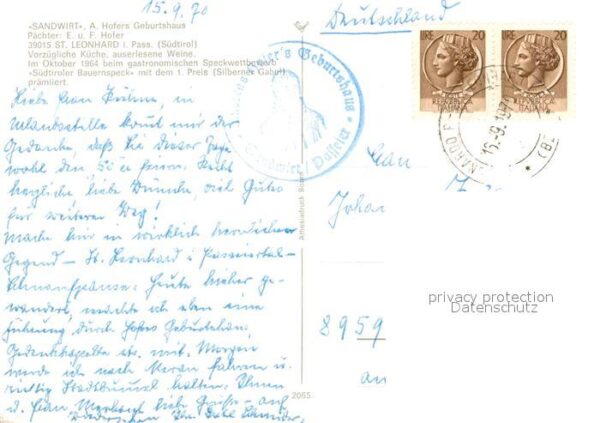 15.9.70
«SANDWIRT», A. Hofers Geburtshaus
Pächter: E. u. F. Hofer
39015 ST. LEONHARD i. Pass. (Südtirol)
Vorzügliche Küche, auserlesene Weine.
Im Oktober 1964 beim gastronomischen Speckwettbewerb
«Südtiroler Bauernspeck» mit dem 1. Preis (Silberner Gabel)
prämiiert.
Liebe Frau Böhme, in
Urlaubsstille kommt mir der
Gedanke, daß Sie dieser Tage
wohl den 50er feiern. Recht
herzliche liebe Wünsche, viel Gutes
für weiteren Weg!
Mache hier in wirklich herrlicher
Gegend – St. Leonhard i Passeiertal –
Heute hierher ge-
wandert, möchte ich eben eine
Führung durch Hofers Geburtshaus,
Gedenkkapelle etc. mit. Morgen
werde ich nach Meran fahren u.
richtig Stadtbummel halten. Ihnen
u. Frau liebe Grüße – auf
Wiedersehen Ihre
Deutschland
Geburtshaus
Sandwirt / Passeier
LIRE 20
REPUBBLICA ITALIANA
LIRE 20
REPUBBLICA ITALIANA
Johan
8959
an
2065
privacy protection
Datenschutz